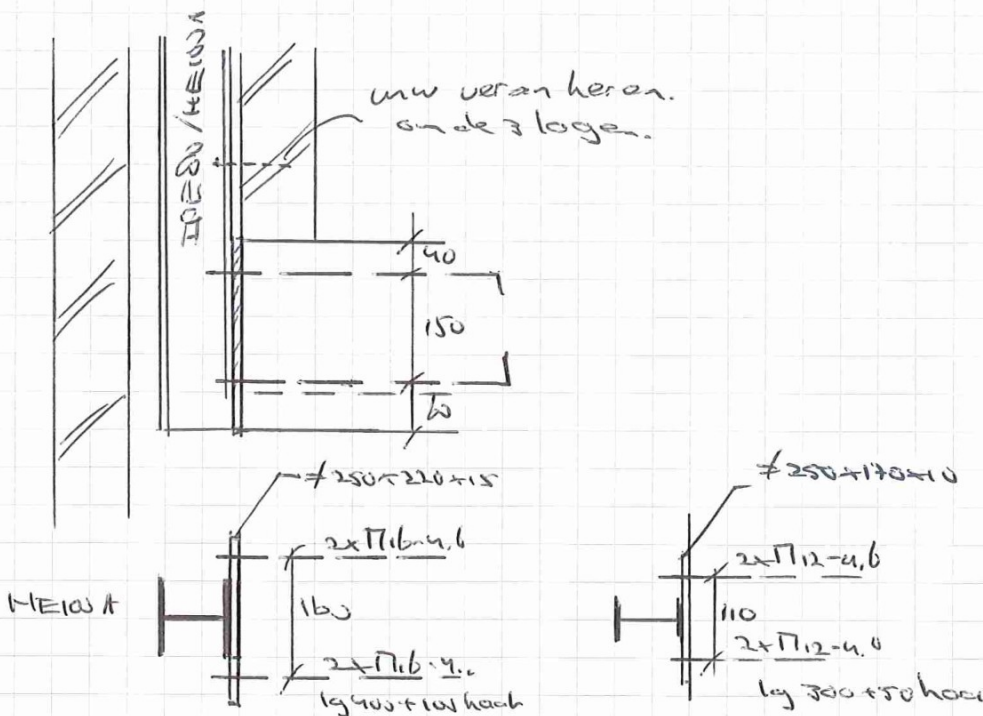 IPE80/HE100A
mw veran keren.
om de 3 lagen.
40
150
60
≠250*220*15
2xM16-4.6
HE100A
160
2xM16-4.
lg 400+100 haak
≠250*170*10
2xM12-4,6
110
2xM12-4.6
lg 300+50 haak